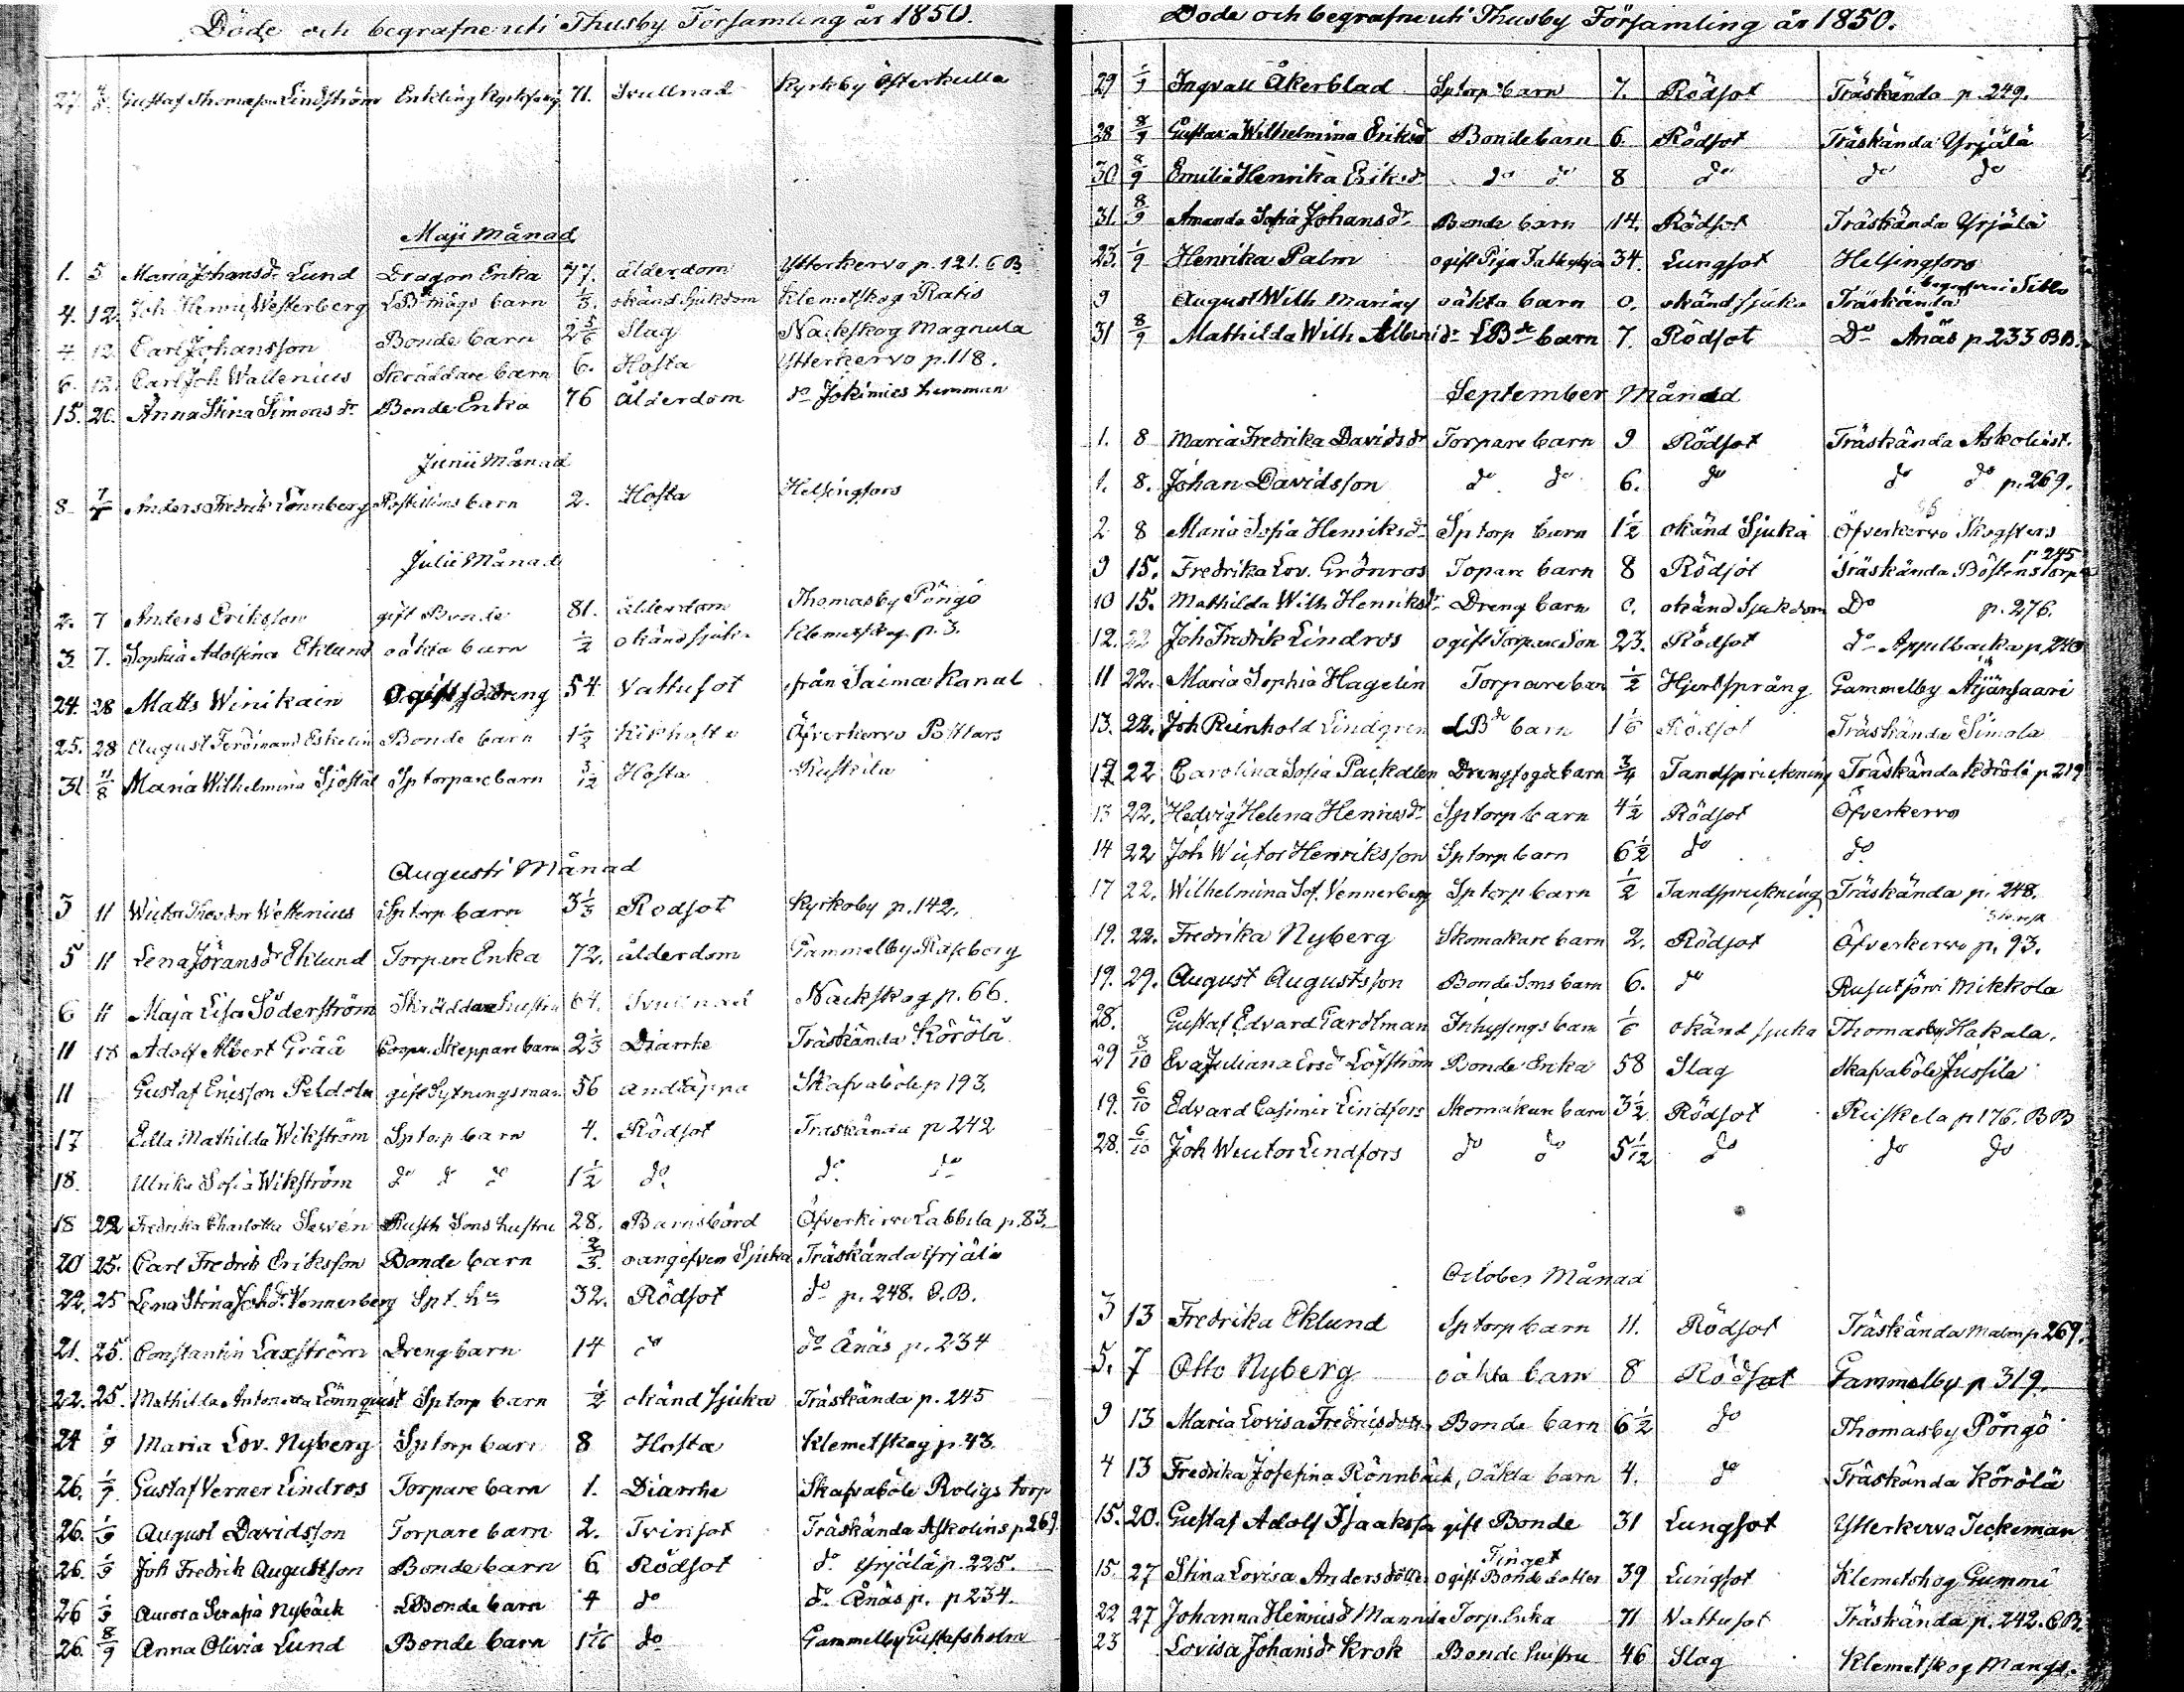 Döde och begrafne uti Thusby Församling år 1850.
27. Gustaf Thomasson Lindström Enkling 71. Svullnad Kyrkby Österkulla
Maji Månad
1. 5 Maria Johansdr Lund Dragon Enka 77. ålderdom Ytterkervo p. 121. C B.
4. 12. Joh Henric Westerberg LB mågs barn 1/3. okänd Sjukdom Klemetskog Ratis
4. 12. Carl Johansson Bonde barn 2 5/6 Slag Nackskog Magnula
6. 12. Carl Joh Wallenius Skräddare barn 6. Hosta Ytterkervo p. 118.
15. 20. Anna Stina Simonsdr Bonde Enka 76 Ålderdom do Jokimies hemman
Junii Månad
8 Anders Fredrik Lönnberg Postillions barn 2. Hosta Helsingfors
Julii Månad
2. 7 Anders Eriksson gift Bonde 81. ålderdom Thomasby Pöngö
3 7. Sophia Adolfina Eklund oäkta barn 1/2 okänd sjuka Klemetskog p. 3.
24. 28 Matts Winikain Ogift 54 Vattusot från Saima Kanal
25. 28 August Ferdinand Eskelin Bonde barn 1 1/2 Kikhosta Öfverkervo Pottars
31 11/8 Maria Wilhelmina Sjöstål Sp torpare barn 3/12 Hosta Ruskila
Augusti Månad
3 11 Wictor Theodor Wettenius Sp torp barn 3 1/3 Rödsot Kyrkoby p. 142.
5 11 Lena Jöransdr Eklund Torpare Enka 72. ålderdom Gammelby Raseborg
6 11 Maja Lisa Söderström Skräddare hustru 64. Svullnad Nackskog p. 66.
11 18 Adolf Albert Gråå Skeppare barn 2 1/3 Diarrhe Träskända Körölä
11 Gustaf Ericsson Peldola gift Sytningsman 56 andtäppa Skafvaböle p 193.
17 Edla Mathilda Wikström Sp torp barn 4. Rödsot Träskända p 242
18. Ulrika Sofia Wikström do do do 1 1/2 do do do
18 22 Fredrika Charlotta Sewén Rusth Sons hustru 28. Barnsbörd Öfverkervo Labbila p. 83
20 25. Carl Fredrik Eriksson Bonde barn 2/3. oangifven Sjuka Träskända Yrjälä
22. 25 Lena Stina Johdr Vennerberg Spt. hu 32. Rödsot do p. 248. C.B.
21. 25. Constantin Laxström Dreng barn 14 do do Ånäs p. 234
22. 25. Mathilda Antonetta Lönnquist Sp torp barn 1/2 okänd sjuka Träskända p. 245
24 1/9 Maria Lov. Nyberg Sp torp barn 8 Hosta Klemetskog p. 43.
26. 1/9 Gustaf Verner Lindros Torpare barn 1. Diarrhe Skafvaböle Roligs torp
26. 1/9 August Davidsson Torpare barn 2. Tvinsot Träskända Askolins p 269
26. 1/9 Joh Fredrik Augustsson Bonde barn 6 Rödsot do Yrjälä p. 225.
26 1/9 Aurora Serafia Nybäck LBonde barn 4 do do Ånäs p. p 234.
26. 8/9 Anna Olivia Lund Bonde barn 1 1/6 do Gammelby Gustafsholm
Döde och begrafne uti Thusby Församling år 1850.
29 1/9 Ingvall Åkerblad Sptorp barn 7. Rödsot Träskända p. 249.
28 8/9 Gustava Wilhelmina Eriksd Bonde barn 6. Rödsot Träskända Yrjälä
30 8/9 Emilia Henrika Eriksdr do do 8 do do do
31. 8/9 Amanda Sofia Johansdr Bonde barn 14. Rödsot Träskända Yrjälä
23. 1/9 Henrika Palm ogift Piga 34. Lungsot Helsingfors
begrafven i Sibbo
9 August Wilh oäkta barn 0. okänd sjuka Träskända
31 8/9 Mathilda Wilh LBde barn 7. Rödsot Do Ånäs p. 233 BB.
September Månad
1. 8 Maria Fredrika Davidsdr Torpare barn 9 Rödsot Träskända Askolinst.
1. 8. Johan Davidsson do do 6. do do do p. 269.
2 8 Maria Sofia Henriksdr Sp torp barn 1 1/2 okänd Sjuka Öfverkervo Skogsters
9 15. Fredrika Lov. Grönros Topare barn 8 Rödsot Träskända Böstens torp p 245
10 15. Mathilda Wilh Henriksdr Dreng barn 0. okänd Sjukdom Do p. 276.
12. 22 Joh Fredrik Lindros ogift Torpare Son 23. Rödsot do Appelbacka p 240
11 22. Maria Sophia Hagelin Torpare barn 1/2 Hjertsprång Gammelby Äijänsaari
13. 22. Joh Reinhold Lindgren LBde barn 1 1/6 Rödsot Träskända Simola
17 22 Carolina Sofia Packalen Drengfogde barn 3/4 Tandsprickning Träskända Körölä p 219
13 22. Hedvig Helena Henricsdr Sptorp barn 4 1/2 Rödsot Öfverkervo
14 22 Joh Wictor Henriksson Sptorp barn 6 1/2 do do
17 22. Wilhelmina Sof. Vennerberg Sptorp barn 1/2 Tandsprickning Träskända p. 248.
19. 22. Fredrika Nyberg Skomakare barn 2. Rödsot Öfverkervo p. 93.
19. 29. August Augustsson Bonde Sons barn 6. do Rusutjärvi Mikkola
28. Gustaf Edvard Inhysings barn 1/6 okänd sjuka Thomasby Hakala.
29 3/10 Eva Juliana Ersdr Löfström Bonde Enka 58 Slag Skafvaböle Jussila
19. 6/10 Edvard Casimir Lindfors Skomakare barn 3 1/2 Rödsot Ruskela p 176. B B
28. 6/10 Joh Wictor Lindfors do do 5 1/12 do do do
October Månad
3 13 Fredrika Eklund Sp torp barn 11. Rödsot Träskända Malm p 269.
5. 7 Otto Nyberg oäkta barn 8 Rödsot Gammelby p 319.
9 13 Maria Lovisa Fredricsdotter Bonde barn 6 1/2 do Thomasby Pöngö
4 13 Fredrika Josefina Rönnbäck, oäkta barn 4. do Träskända Körölä
15. 20. Gustaf Adolf Isaaksson gift Bonde 31 Lungsot Ytterkervo Jeckiman
15. 27 Stina Lovisa Andersdotter ogift Bonde dotter 39 Lungsot Klemetskog Gummi
22 27 Johanna Henricsd Mannila Torp. Enka 71 Vattusot Träskända p. 242. C.B.
23 Lovisa Johansdr Krok Bonde hustru 46 Slag Klemetskog Mangs.